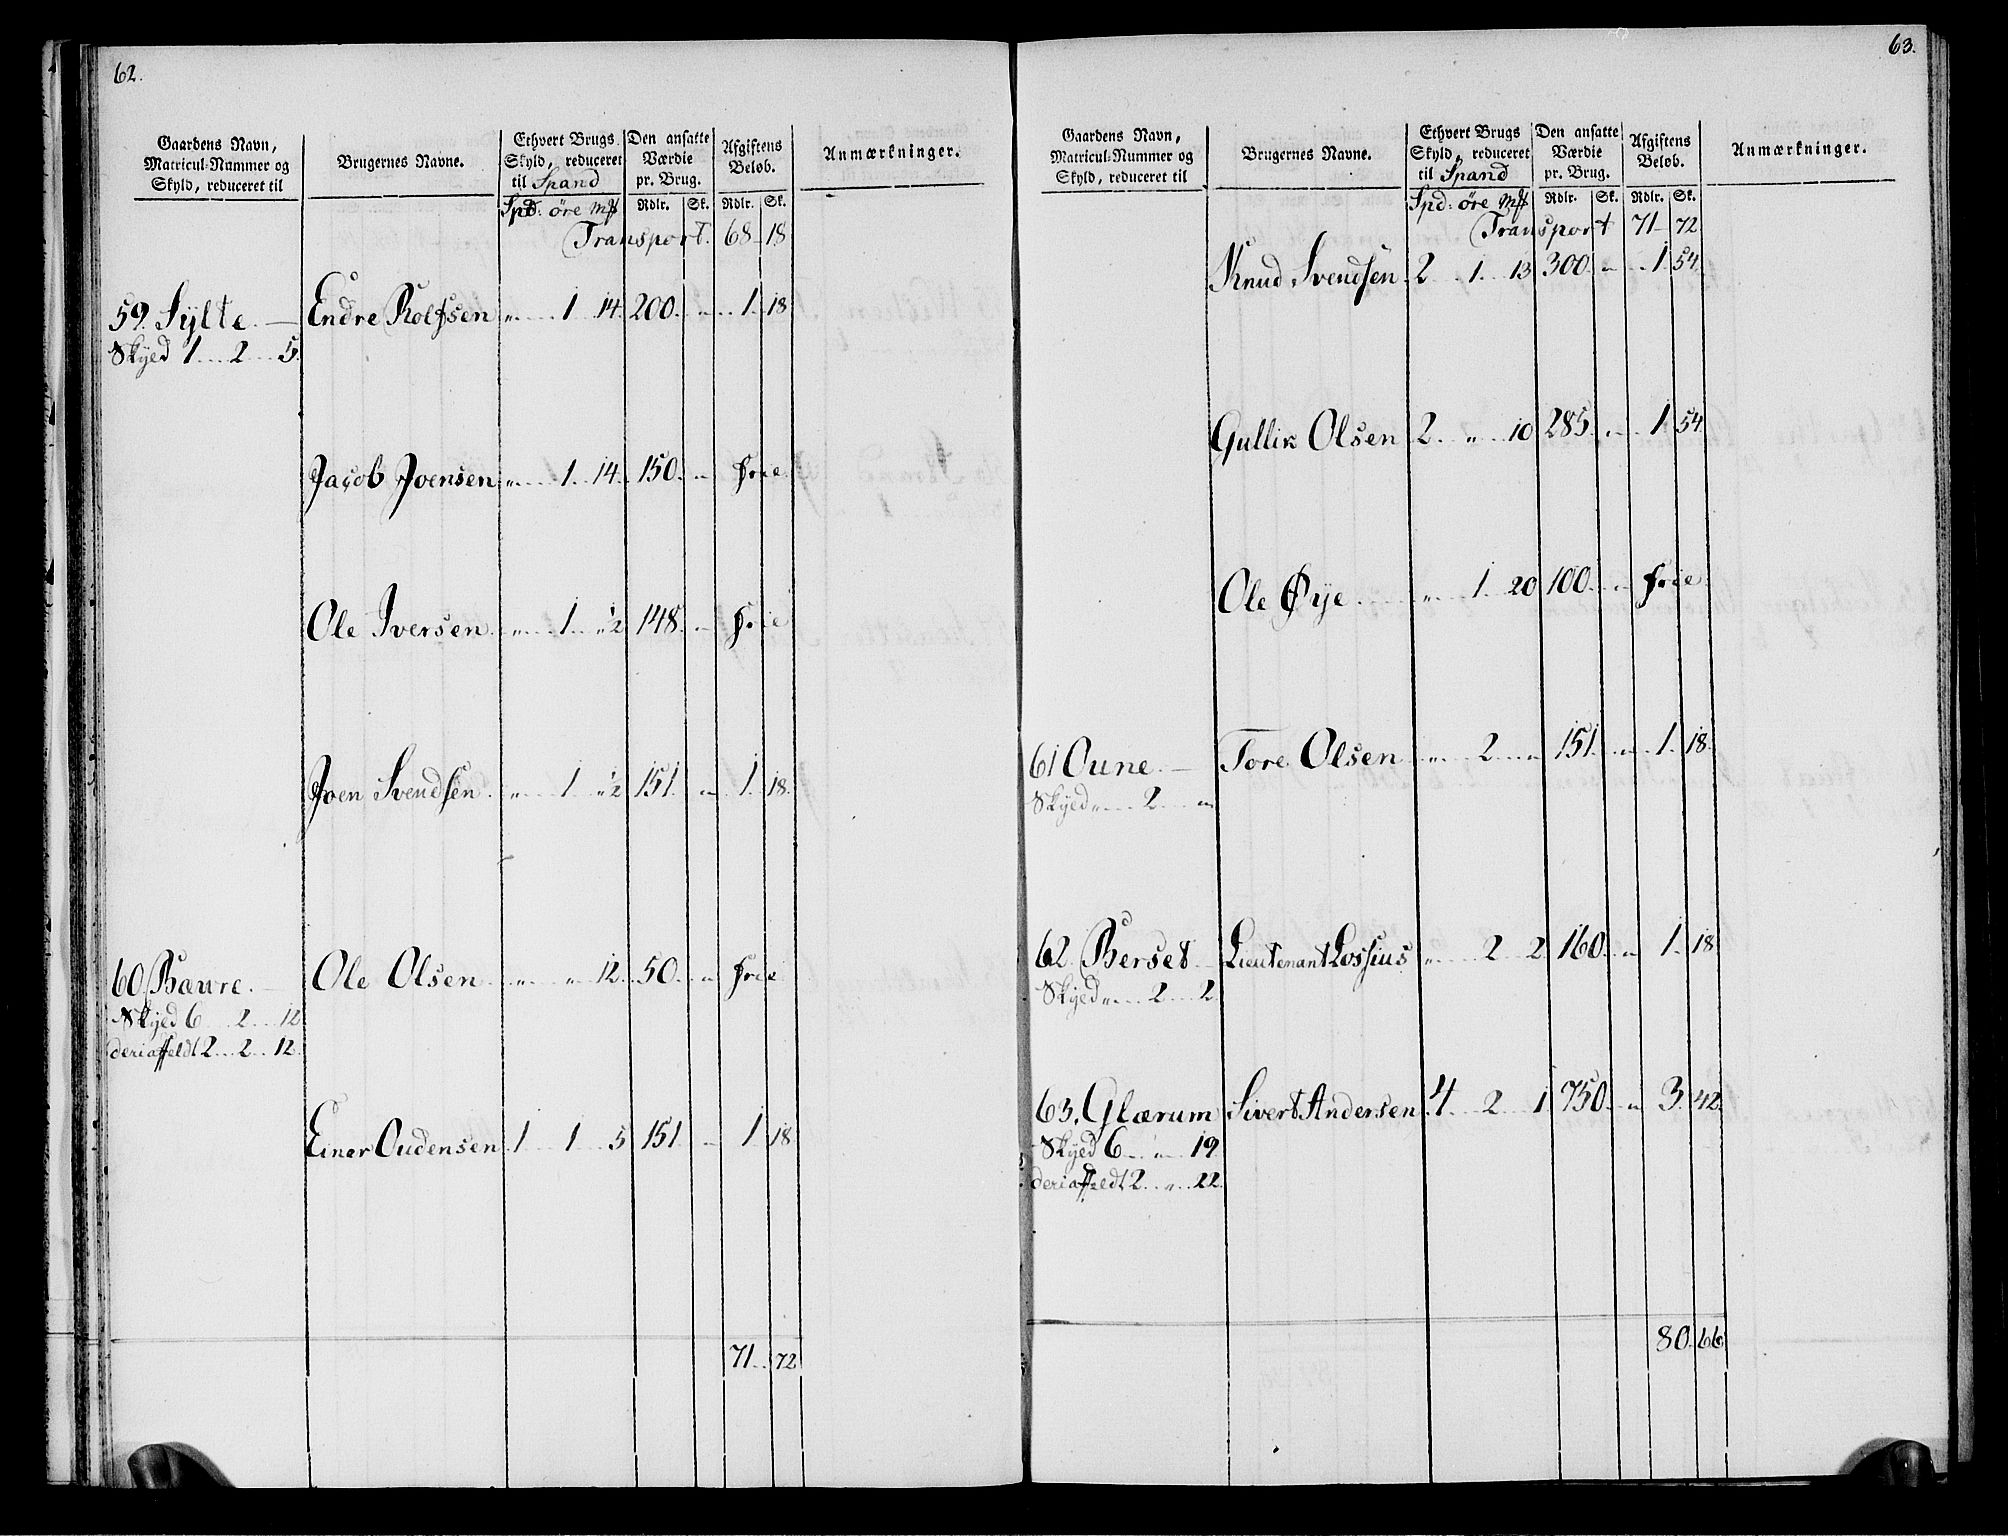 62.
Gaardens Navn, Matricul-Nummer og Skyld, reduceret til
Brugernes Navne.
Ethvert Brugs Skyld, reduceret til Spand
Den ansatte Værdie pr. Brug.
Afgiftens Beløb.
Anmærkninger.
Spd: öre Mk Rdlr. Sk. Rdlr. Sk.
Transport. 68 18
59. Sylte. Endre Rolfsen „ 1 14. 200. „ 1. 18.
Skyed 1 2 5.
Jacob Joensen „ 1. 14. 150. „ Frie.
Ole Iversen „ 1 „½ 148. „ Frie
Joen Svendsen „ 1 „½ 151. „ 1. 18.
60. Baure. Ole Olsen „ „ 12. 50. „ Frie
Skyed 6 2 12
deriaffeldt 2 2 12.
Einer Oudensen 1 1 5 151. „ 1 18.
71. 72
63.
Gaardens Navn, Matricul-Nummer og Skyld, reduceret til
Brugernes Navne.
Ethvert Brugs Skyld, reduceret til Spand
Den ansatte Værdie pr. Brug.
Afgiftens Beløb.
Anmærkninger.
Spd: öre Mk Rdlr. Sk. Rdlr. Sk.
Transport 71 72
Knud Svendsen 2 1. 13. 300. „ 1. 54.
Gullik Olsen 2. „ 10 285. „ 1. 54.
Ole Øye „ 1. 20 100. „ Frie.
61 Oune. Tore Olsen „ 2 „ 151. „ 1. 18.
Skyed „ 2 „
62. Berset Lieutenant Lossius „ 2 2. 160. „ 1. 18.
Skyed „ 2 2.
63. Glærum Sivert Andersen 4 2 1 750. „ 3. 42.
Skyed 6 „ 19.
deriaffeldt 2 „ 22.
80. 66.